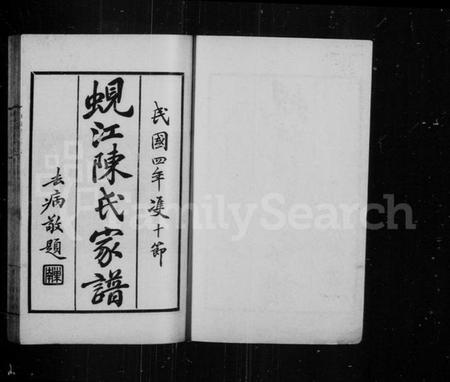 民國四年雙十節
蜆江陳氏家譜
去病敬題
FamilySearch